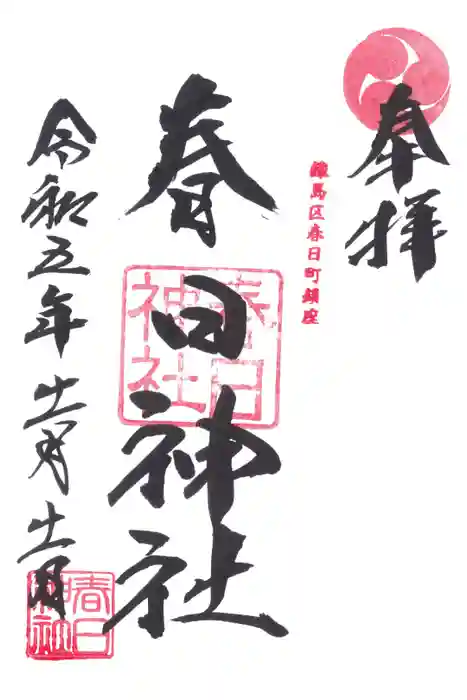 奉拝
練馬区春日町鎮座
春日神社
春日神社
令和五年十一月十一日
春日神社